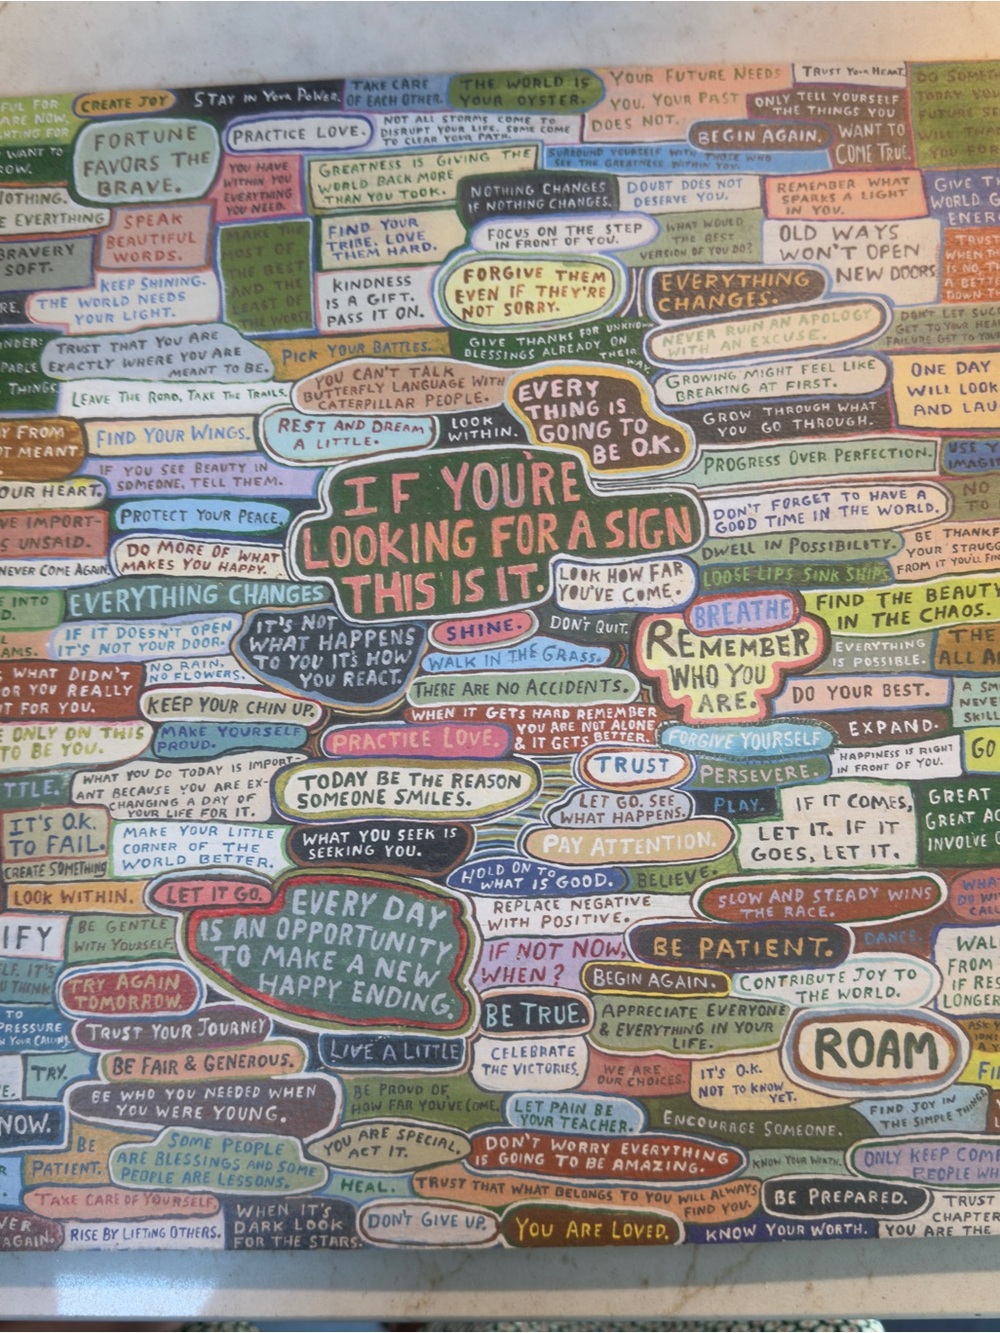 FUL FOR
ARE NOW.
HTING FOR
CREATE JOY
STAY IN YOUR POWER.
TAKE CARE
OF EACH OTHER.
THE WORLD IS
YOUR OYSTER.
YOUR FUTURE NEEDS
YOU. YOUR PAST
DOES NOT.
TRUST YOUR HEART.
ONLY TELL YOURSELF
THE THINGS YOU
WANT TO
COME TRUE.
WANT TO
FORTUNE
FAVORS THE
BRAVE.
PRACTICE LOVE.
NOT ALL STORMS COME TO
DISRUPT YOUR LIFE. SOME COME
TO CLEAR YOUR PATH.
BEGIN AGAIN.
YOU HAVE
WITHIN YOU
EVERYTHING
YOU NEED.
GREATNESS IS GIVING THE
WORLD BACK MORE
THAN YOU TOOK.
SURROUND YOURSELF WITH THOSE WHO
SEE THE GREATNESS WITHIN YOU.
NOTHING CHANGES
IF NOTHING CHANGES.
DOUBT DOES NOT
DESERVE YOU.
REMEMBER WHAT
SPARKS A LIGHT
IN YOU.
GIVE TH
WORLD G
ENER
NOTHING.
E EVERYTHING
SPEAK
BEAUTIFUL
WORDS.
MAKE THE
MOST OF
THE BEST
AND THE
LEAST OF
THE WORST
FIND YOUR
TRIBE. LOVE
THEM HARD.
FOCUS ON THE STEP
IN FRONT OF YOU.
WHAT WOULD
THE BEST
VERSION OF YOU DO?
OLD WAYS
WON'T OPEN
NEW DOORS.
BRAVERY
SOFT.
KEEP SHINING.
THE WORLD NEEDS
YOUR LIGHT.
KINDNESS
IS A GIFT.
PASS IT ON.
FORGIVE THEM
EVEN IF THEY'RE
NOT SORRY.
EVERYTHING
CHANGES.
NEVER RUIN AN APOLOGY
WITH AN EXCUSE.
TRUST THAT YOU ARE
EXACTLY WHERE YOU ARE
MEANT TO BE.
PICK YOUR BATTLES.
GIVE THANKS FOR UNKNOWN
BLESSINGS ALREADY ON
THEIR WAY
THINGS
LEAVE THE ROAD, TAKE THE TRAILS.
YOU CAN'T TALK
BUTTERFLY LANGUAGE WITH
CATERPILLAR PEOPLE.
EVERY
THING IS
GOING TO
BE O.K.
GROWING MIGHT FEEL LIKE
BREAKING AT FIRST.
ONE DAY
WILL LOOK
AND LAU
Y FROM
OT MEANT
FIND YOUR WINGS.
REST AND DREAM
A LITTLE.
LOOK
WITHIN.
GROW THROUGH WHAT
YOU GO THROUGH.
IF YOU SEE BEAUTY IN
SOMEONE, TELL THEM.
PROGRESS OVER PERFECTION.
OUR HEART.
IF YOU'RE
LOOKING FOR A SIGN
THIS IS IT.
DON'T FORGET TO HAVE A
GOOD TIME IN THE WORLD.
NO
TO
VE IMPORT-
S UNSAID.
PROTECT YOUR PEACE.
DWELL IN POSSIBILITY.
BE THANKF
YOUR STRUGG
FROM IT YOU'LL FIN
NEVER COME AGAIN.
DO MORE OF WHAT
MAKES YOU HAPPY.
LOOK HOW FAR
YOU'VE COME.
LOOSE LIPS SINK SHIPS.
E INTO
EVERYTHING CHANGES
BREATHE
FIND THE BEAUTY
IN THE CHAOS.
IF IT DOESN'T OPEN
IT'S NOT YOUR DOOR.
IT'S NOT
WHAT HAPPENS
TO YOU IT'S HOW
YOU REACT.
SHINE.
DON'T QUIT.
REMEMBER
WHO YOU
ARE.
EVERYTHING
IS POSSIBLE.
THE
ALL A
WHAT DIDN'T
OR YOU REALLY
T FOR YOU.
NO RAIN,
NO FLOWERS.
WALK IN THE GRASS.
KEEP YOUR CHIN UP.
THERE ARE NO ACCIDENTS.
DO YOUR BEST.
A SM
NEVE
SKILL
E ONLY ON THIS
TO BE YOU.
MAKE YOURSELF
PROUD.
PRACTICE LOVE.
WHEN IT GETS HARD REMEMBER
YOU ARE NOT ALONE
& IT GETS BETTER.
FORGIVE YOURSELF
EXPAND.
HAPPINESS IS RIGHT
IN FRONT OF YOU.
GO
TTLE.
WHAT YOU DO TODAY IS IMPORT-
ANT BECAUSE YOU ARE EX-
CHANGING A DAY OF
YOUR LIFE FOR IT.
TODAY BE THE REASON
SOMEONE SMILES.
TRUST
PERSEVERE.
LET GO. SEE
WHAT HAPPENS.
PLAY.
IF IT COMES,
LET IT. IF IT
GOES, LET IT.
GREAT
GREAT AC
INVOLVE
IT'S O.K.
TO FAIL.
MAKE YOUR LITTLE
CORNER OF THE
WORLD BETTER.
WHAT YOU SEEK IS
SEEKING YOU.
PAY ATTENTION.
CREATE SOMETHING
HOLD ON TO
WHAT IS GOOD.
BELIEVE.
LOOK WITHIN.
LET IT GO.
EVERY DAY
IS AN OPPORTUNITY
TO MAKE A NEW
HAPPY ENDING.
REPLACE NEGATIVE
WITH POSITIVE.
SLOW AND STEADY WINS
THE RACE.
IFY
BE GENTLE
WITH YOURSELF.
IF NOT NOW,
WHEN?
BE PATIENT.
DANCE.
WAL
FROM
IF RES
LONGER
TRY AGAIN
TOMORROW.
BEGIN AGAIN.
CONTRIBUTE JOY TO
THE WORLD.
TO
PRESSURE
TRUST YOUR JOURNEY
BE TRUE.
APPRECIATE EVERYONE
& EVERYTHING IN YOUR
LIFE.
ROAM
TRY.
BE FAIR & GENEROUS.
LIVE A LITTLE
CELEBRATE
THE VICTORIES.
WE ARE
OUR CHOICES.
IT'S O.K.
NOT TO KNOW
YET.
NOW.
BE WHO YOU NEEDED WHEN
YOU WERE YOUNG.
BE PROUD OF
HOW FAR YOU'VE COME.
LET PAIN BE
YOUR TEACHER.
ENCOURAGE SOMEONE.
FIND JOY IN
THE SIMPLE THINGS
BE
PATIENT.
SOME PEOPLE
ARE BLESSINGS AND SOME
PEOPLE ARE LESSONS.
YOU ARE SPECIAL.
ACT IT.
DON'T WORRY EVERYTHING
IS GOING TO BE AMAZING.
KNOW YOUR WORTH.
ONLY KEEP COMP
PEOPLE WH
TAKE CARE OF YOURSELF.
HEAL.
TRUST THAT WHAT BELONGS TO YOU WILL ALWAYS
FIND YOU.
BE PREPARED.
TRUST
CHAPTER
YOU ARE THE
VER
AGAIN.
RISE BY LIFTING OTHERS.
WHEN IT'S
DARK LOOK
FOR THE STARS.
DON'T GIVE UP.
YOU ARE LOVED.
KNOW YOUR WORTH.